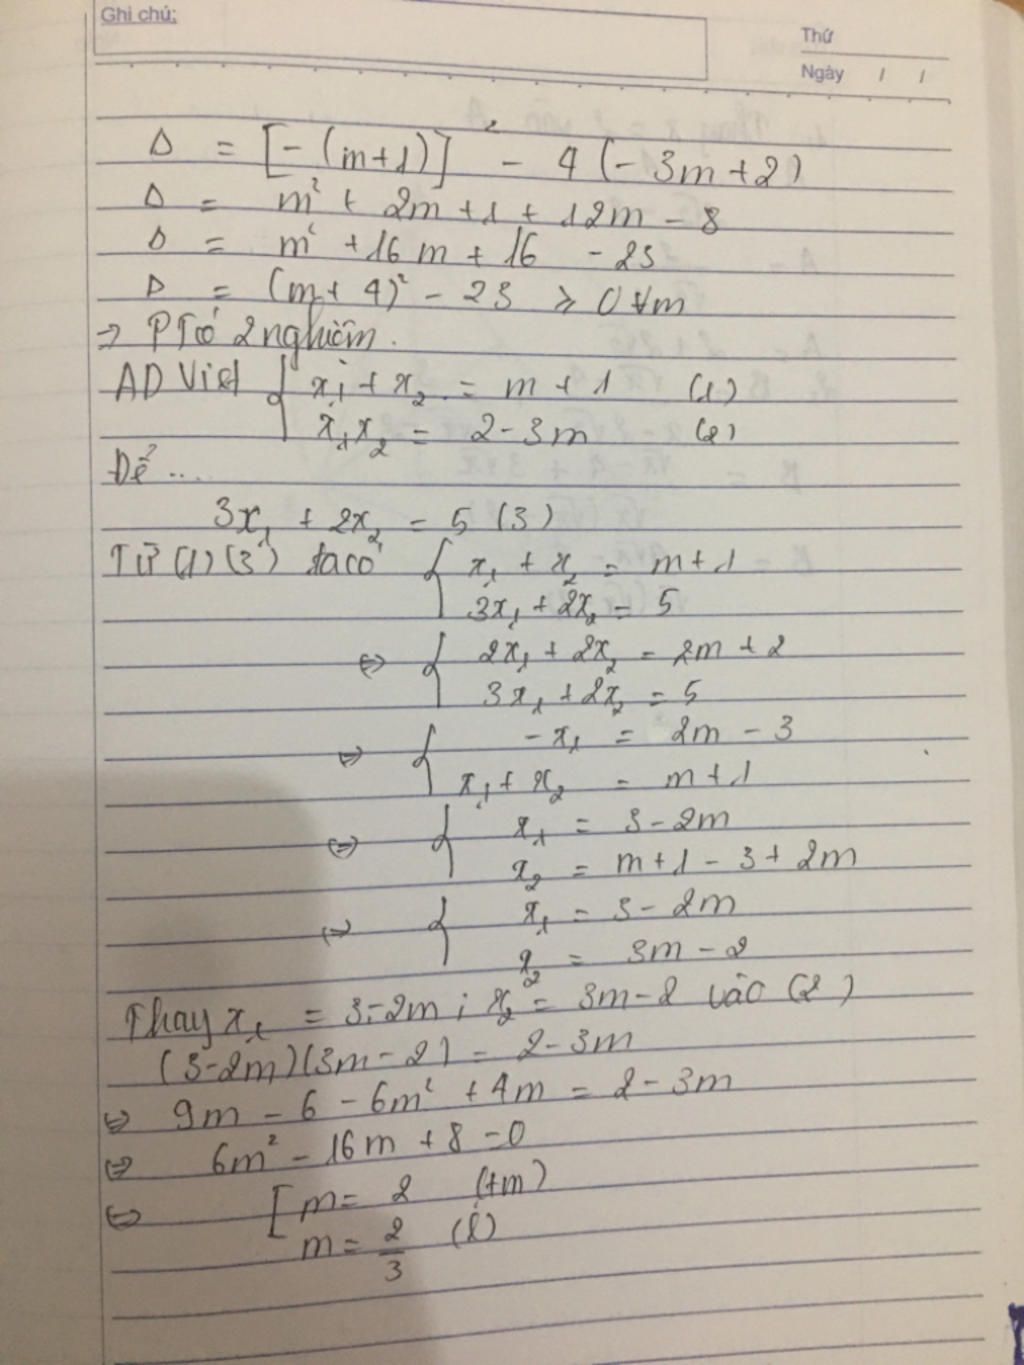 Ghi chú:
Thứ
Ngày / /
Δ = [-(m+1)]² - 4(-3m+2)
Δ = m² + 2m+1 + 12m - 8
Δ = m² +16m + 16 - 23
Δ = (m+ 4)² - 23 ≥ 0 ∀m
⇒ PT có 2 nghiệm.
AD Viet { x₁ + x₂ = m + 1 (1)
x₁x₂ = 2-3m (2)
Để ....
3x₁ + 2x₂ = 5 (3)
Từ (1) (3) ta có { x₁ + x₂ = m+1
3x₁ + 2x₂ = 5
⇔ { 2x₁ + 2x₂ = 2m + 2
3x₁ + 2x₂ = 5
⇔ { -x₁ = 2m - 3
x₁ + x₂ = m+1
⇔ { x₁ = 3-2m
x₂ = m+1 - 3 + 2m
⇔ { x₁ = 3-2m
x₂ = 3m-2
Thay x₁ = 3-2m ; x₂ = 3m-2 vào (2)
(3-2m)(3m-2) = 2-3m
⇔ 9m - 6 - 6m² + 4m = 2-3m
⇔ 6m² - 16m + 8 = 0
⇔ [ m = 2 (tm)
m = 2/3 (l)